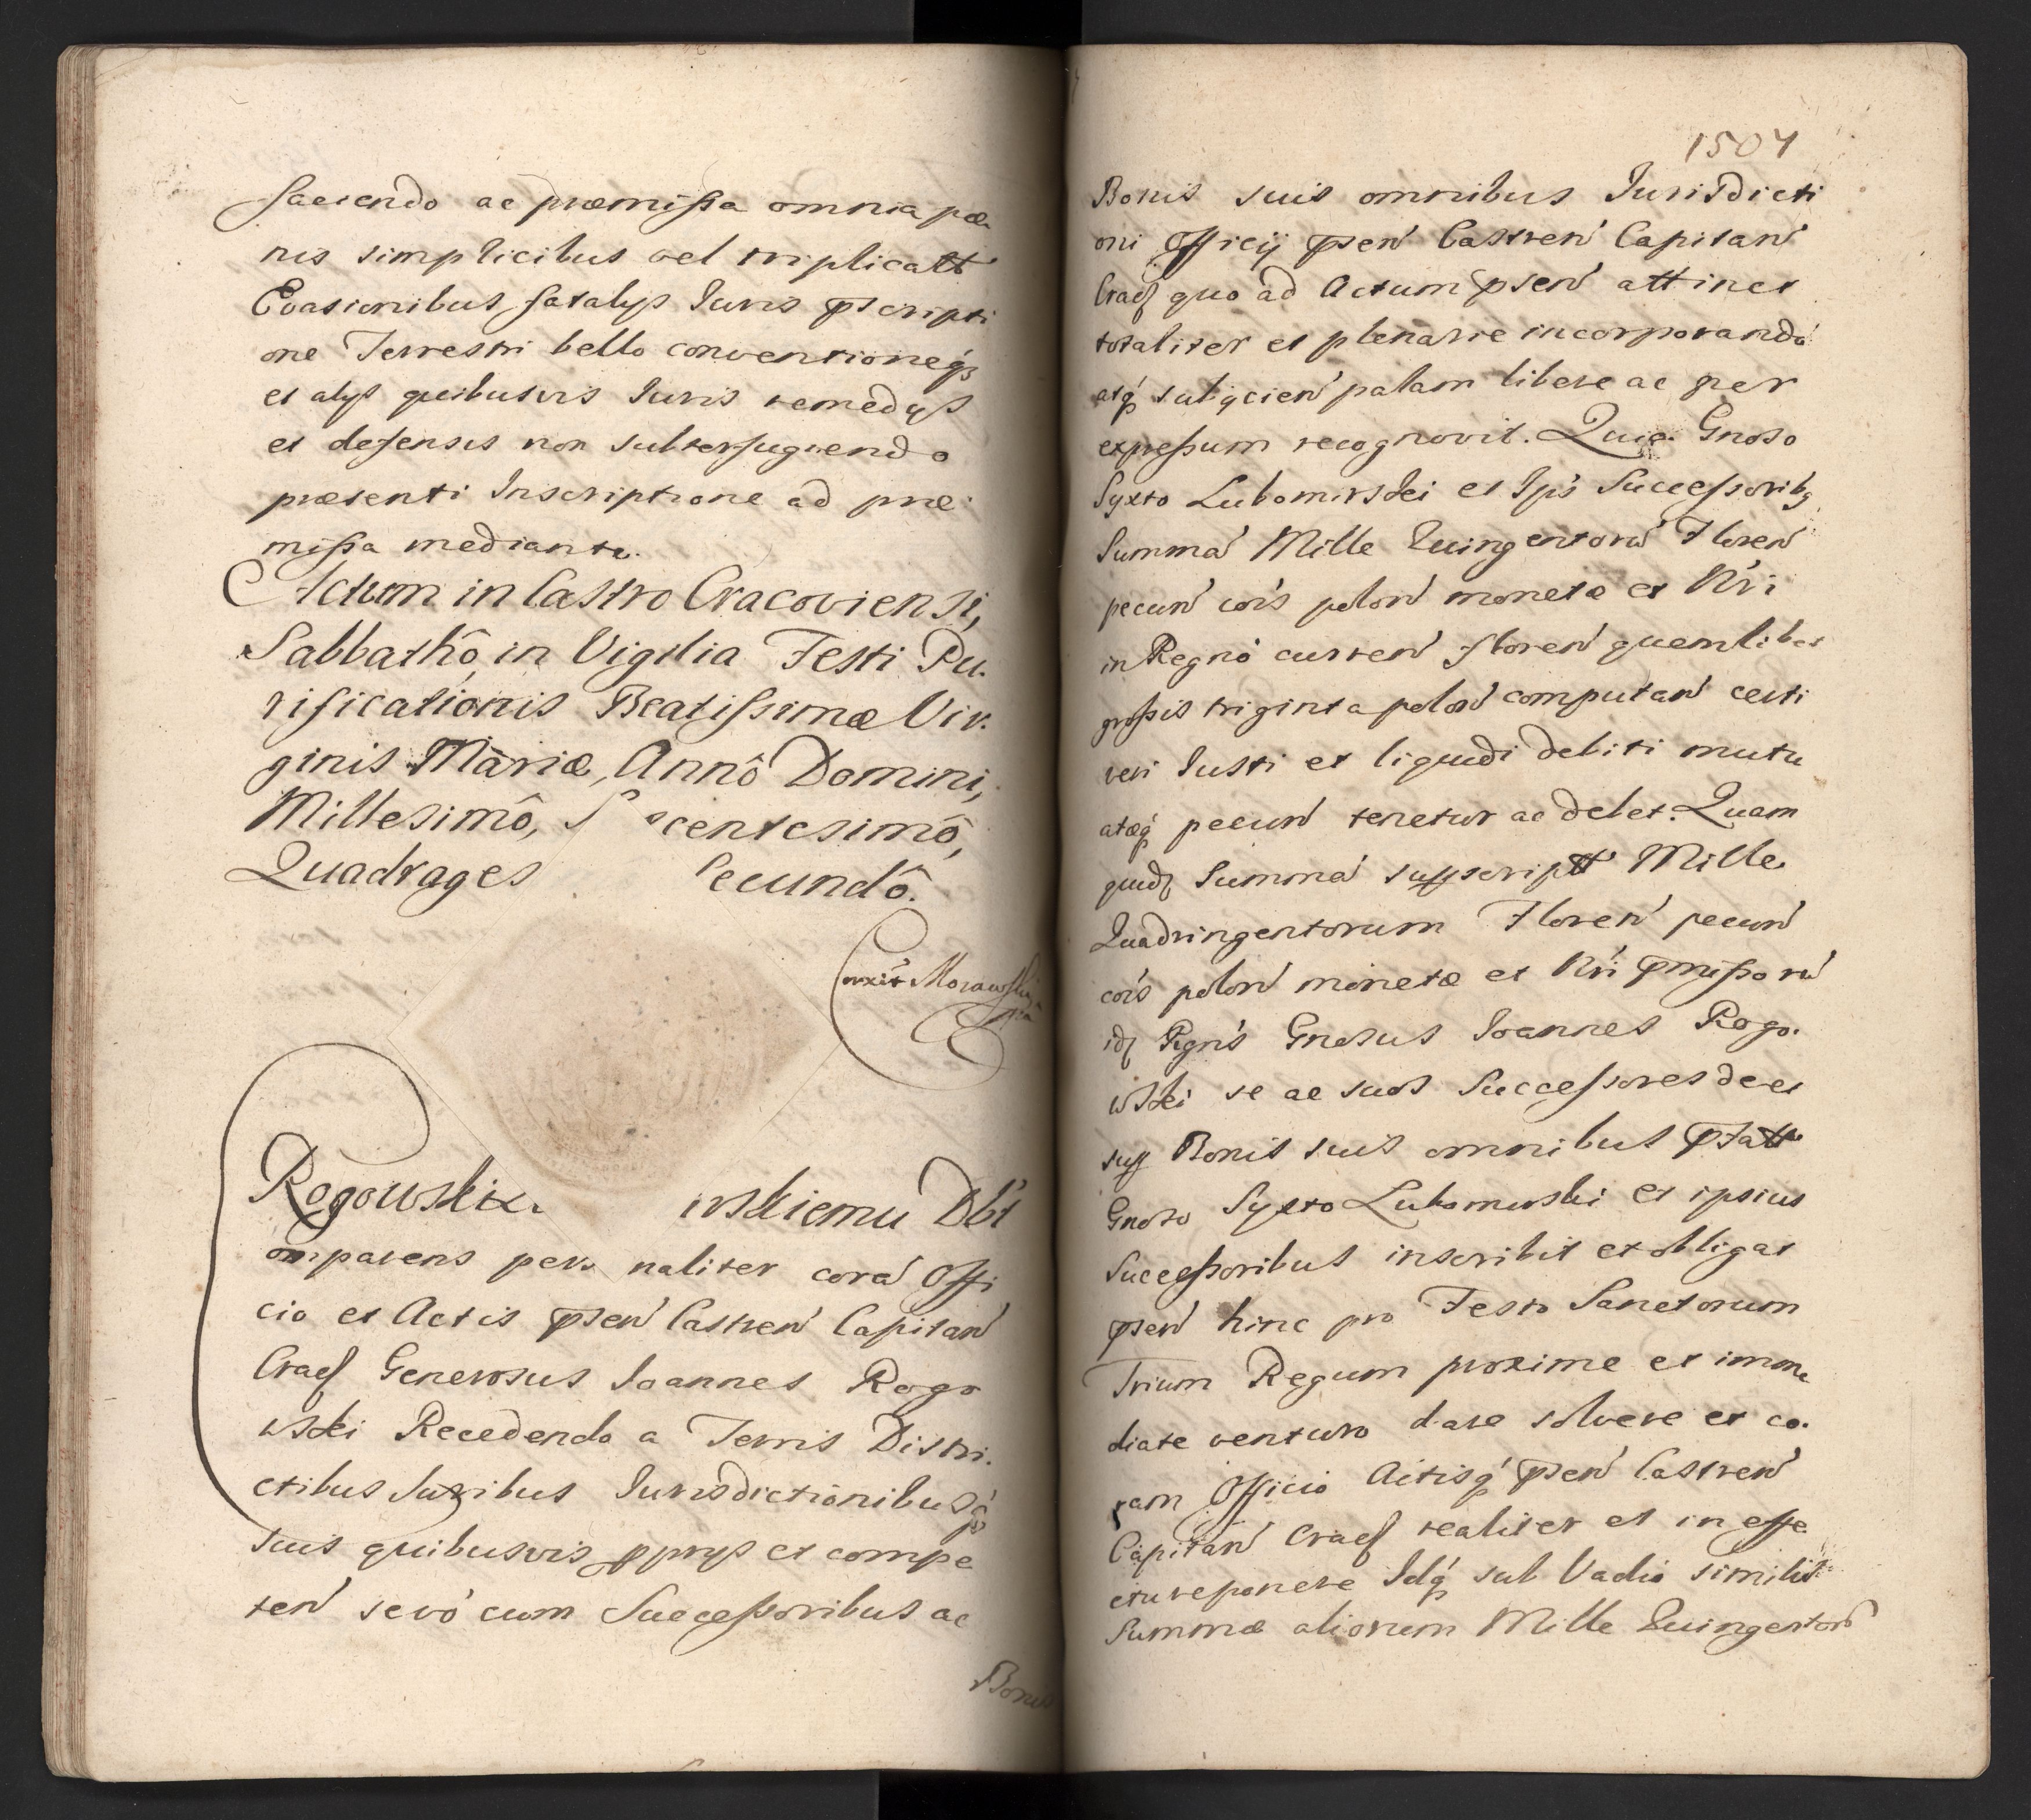 faciendo ac præmissa omnia pæ
nis simplicibus vel triplicatt
Evasionibus fatalys Iuris pscripti
one Terrestri bello conventioneq3
et alys quibusvis Iuris remedys
et defensis non subterfugiendo
præsenti Inscriptione ad præ
missa mediante.
Actum in Castro Cracoviensi,
Sabbathô, in Vigilia Festi Pu.
rificationis Beatissimæ Vir.
ginis Mariæ, Annô Domini,
Millesimô, S centesimô,
Quadrages Secundô.
Morawski
Rogowski wskiemu Dbt
omparens pers naliter corā Offi
cio et Actis psen̄ Castren̄ Capitan̄
Crac Generosus Ioannes Rogo
wski Recedendo a Terris Distri.
ctibus Iuribus Iurisdictionibusq
suis quibusvis pprys et compe
ten̄ sevó cum Successoribus ac
Bonis
1504
Bonis suis omnibus Iurisdicti
oni Officij psen̄ Castren̄ Capitan̄
Crac quo ad Actum psen̄ attinet
totaliter et plenarie incorporandó
atq subycien̄ palam libere ac per
expressum recognovit. Quia Gnoso
Syxto Lubomirski et Ips Successorib9
Summā Mille Quingentorū Floren̄
pecun̄ cōis polon̄ monetæ et Nri
in Regnó curren̄ floren̄ quemlibet
grossis triginta polon̄ computan̄ certi
veri Iusti et liquidi debiti mutu
atæq pecun̄ tenetur ac debet. Quam
quid Summā suprscriptt Mille
Quadringentorum Floren̄ pecun̄
cōis polon̄ monetæ et Nri pmissorū
id Rgns Gnosus Ioannes Rogo.
wski se ac suos Successores de et
sup Bonis suis omnibus pfatt
Gnoso Syxto Lubomirski et ipsius
Successoribus inscribit et obligat
psen̄ hinc pro Festo Sanctorum
Trium Regum proxime et imme
diate venturo dare solvere et co.
ram Officio Actisq psen̄ Castren̄
Capitan̄ Crac realiter et in effe
ctu reponere Idq sub Vadio similis
Summæ aliorum Mille Quingentorū